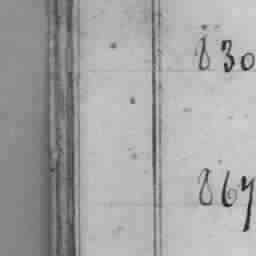 830
867